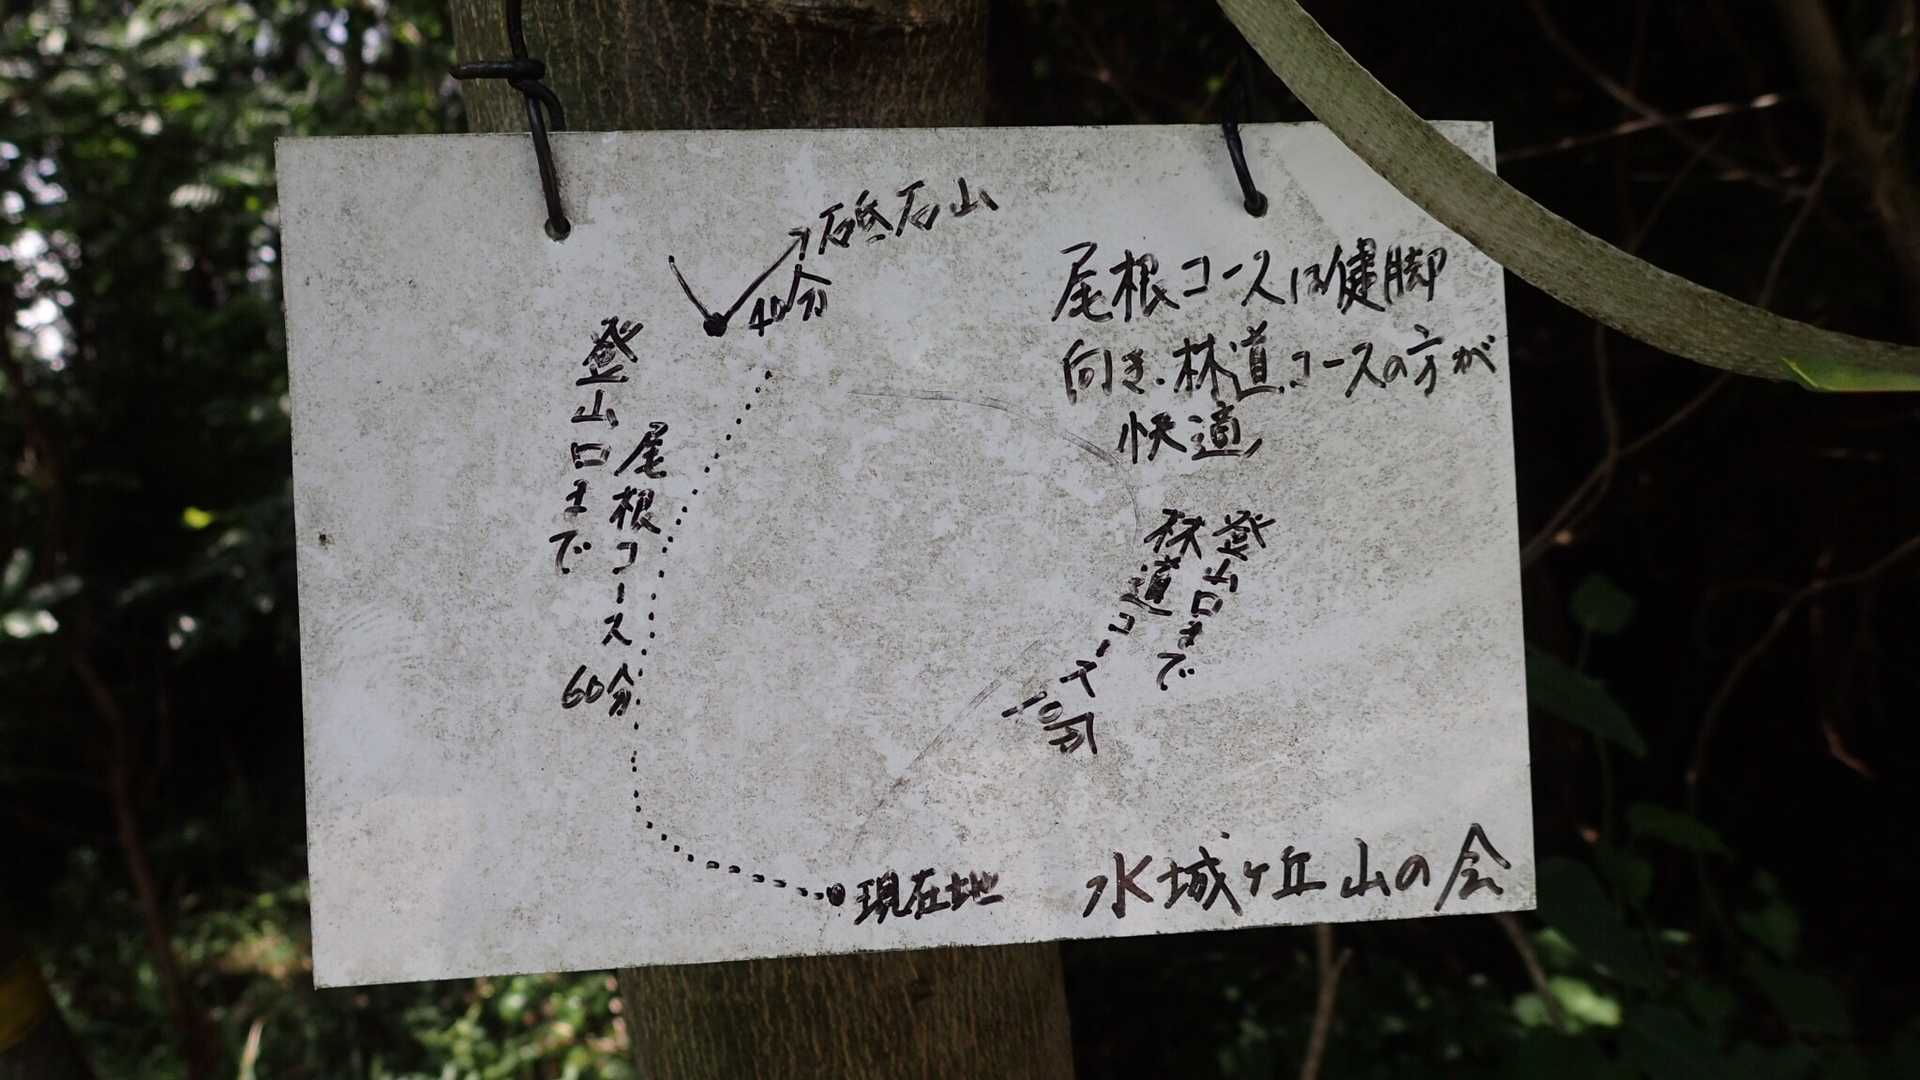 砥石山
40分
尾根コースは健脚
向き.林道コースの方が
快適
登山口まで
尾根コース
60分
登山口まで
林道コース
10分
現在地
水城ヶ丘山の会